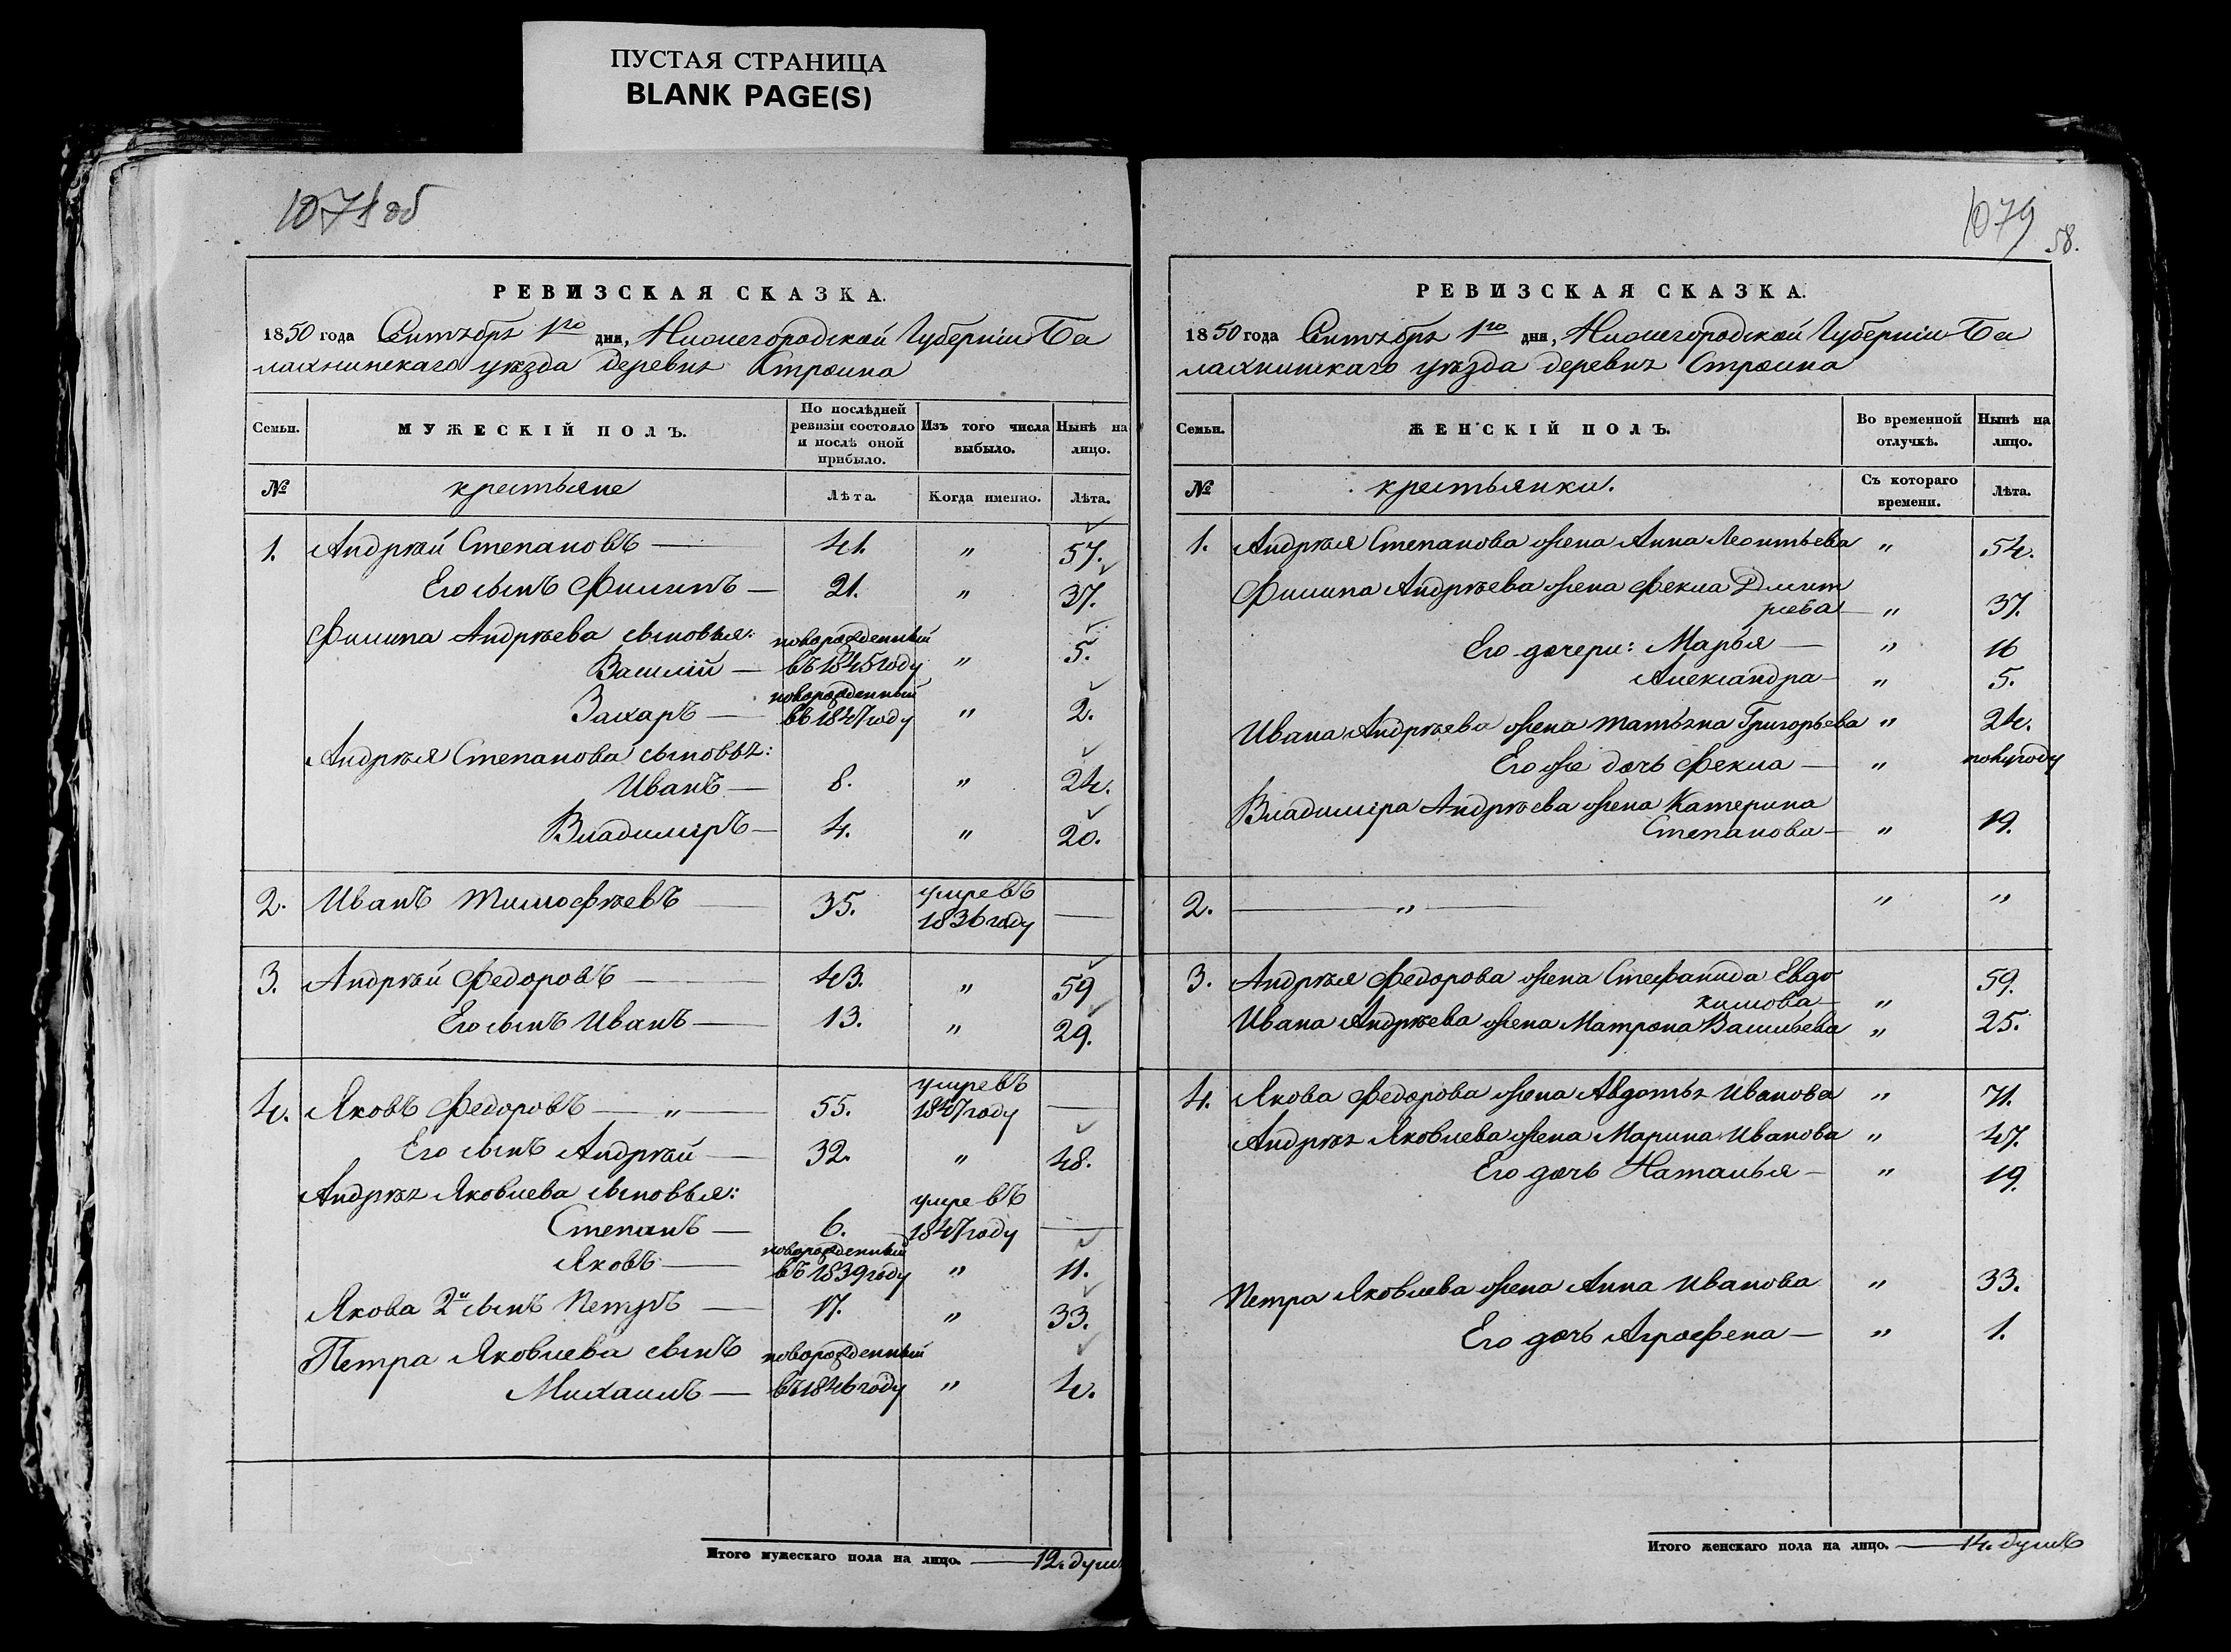 ПУСТАЯ СТРАНИЦА
BLANK PAGE(S)
1078 об
РЕВИЗСКАЯ СКАЗКА.
1850 года Сентября 1го дня, Нижегородской Губернiи Ба
лахнинскаго уѣзда деревни Строина
Семьи.
МУЖЕСКIЙ ПОЛЪ.
По послѣдней ревизiи состояло и послѣ оной прибыло.
Изъ того числа выбыло.
Нынѣ на лицо.
№ крестьяне Лѣта. Когда именно. Лѣта.
1. Андрѣй Степановъ — 41. " 57.
Его сынъ Филипъ — 21. " 37.
Филипа Андрѣева сыновья: новорожденный
Василiй — въ 1845 году " 5.
новорожденный
Захаръ — въ 1847 году " 2.
Андрѣя Степанова сыновья:
Иванъ — 8. " 24.
Владимiръ — 4. " 20.
2. Иванъ Тимофѣевъ — 35. умре въ 1836 году —
3. Андрѣй Федоровъ — 43. " 59
Его сынъ Иванъ — 13. " 29.
4. Яковъ Федоровъ — " — 55. умре въ 1847 году —
Его сынъ Андрѣй — 32. " 48.
Андрѣя Яковлева сыновья:
Степанъ — 6. умре въ 1847 году —
новорожденный
Яковъ — въ 1839 году " 11.
Якова 2й сынъ Петръ — 17. " 33.
Петра Яковлева сынъ новорожденный
Михаилъ — въ 1846 году " 4.
Итого мужескаго пола на лицо. — 12. душ
1079
58.
РЕВИЗСКАЯ СКАЗКА.
1850 года Сентября 1го дня, Нижегородской Губернiи Ба
лахнинскаго уѣзда деревни Строина
Семьи.
ЖЕНСКIЙ ПОЛЪ.
Во временной отлучкѣ.
Нынѣ на лицо.
№ крестьянки. Съ котораго времени. Лѣта.
1. Андрѣя Степанова жена Анна Леонтьева " 54.
Филипа Андрѣева жена Фекла Дмит
рiева — " 37.
Его дочери: Марья — " 16
Александра — " 5.
Ивана Андрѣева жена Татьяна Григорьева " 24.
Его же дочь Фекла — " полугоду
Владимiра Андрѣева жена Катерина
Степанова — " 19.
2. — " — " "
3. Андрѣя Федорова жена Стефанида Евдо
кимова — " 59.
Ивана Андрѣева жена Матрона Васильева " 25.
4. Якова Федорова жена Авдотья Иванова " 71.
Андрѣя Яковлева жена Марина Иванова " 47.
Его дочь Наталья — " 19.
Петра Яковлева жена Анна Иванова " 33.
Его дочь Аграфена — " 1.
Итого женскаго пола на лицо. — 14. душъ